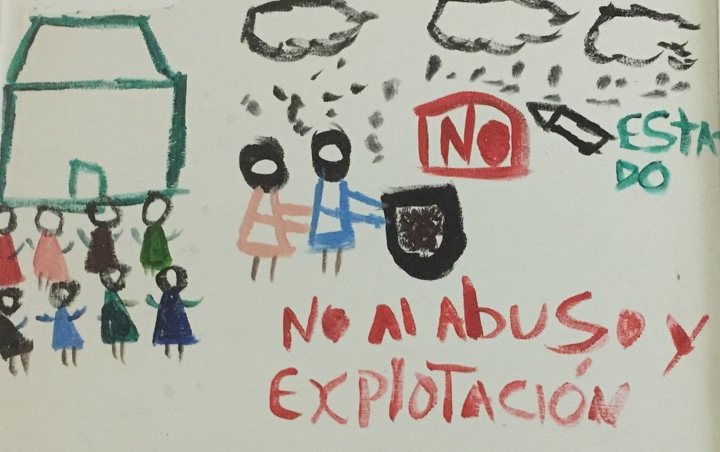 NO
ESTA
DO
NO Al AbUSO y
EXPlOTACIÓN